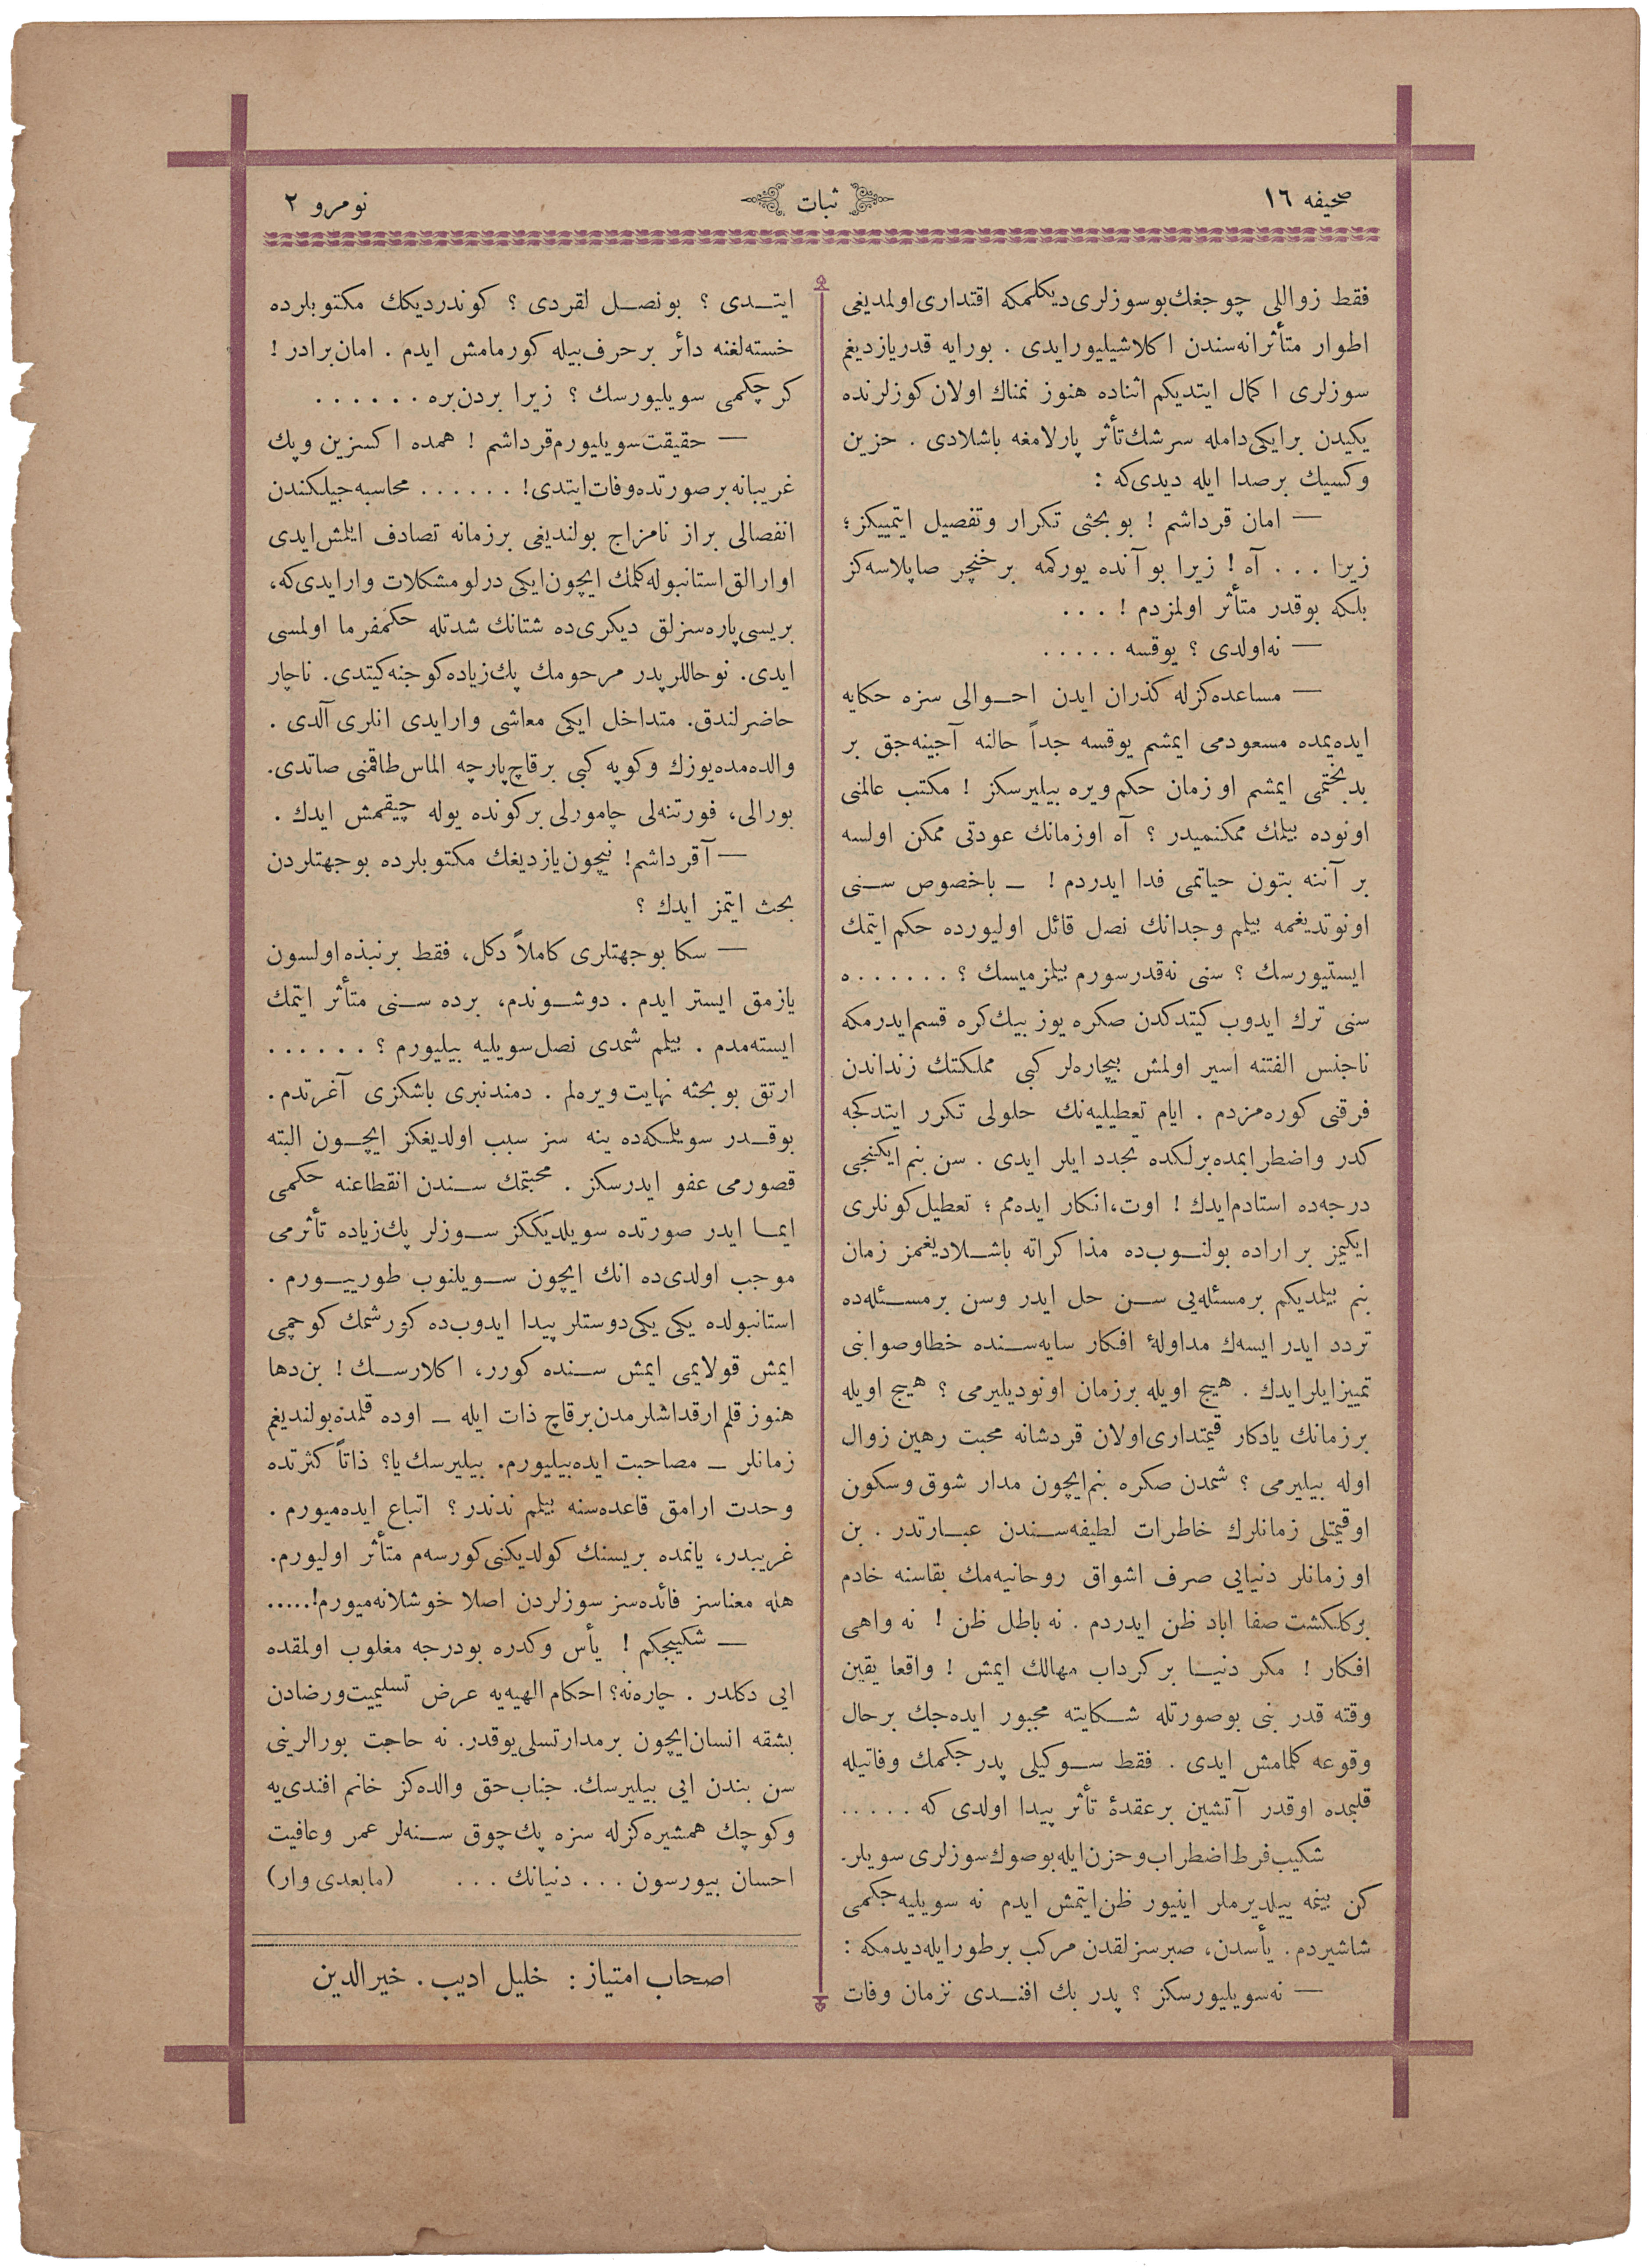 صحیفه ١٦
ثبات
نومرو ٢
فقط زواللی چوجغك بو سوزلری دیكلمكه اقتداری اولمدیغی
اطوار متأثرانه‌سندن اكلاشیلیور ایدی . بورایه قدر یازدیغم
سوزلری اكمال ایتدیكم اثناده هنوز نمناك اولان كوزلرنده
یكیدن بر ایكی دامله سرشك تأثر پارلامغه باشلادی . حزین
وكسیك بر صدا ایله دیدی‌كه :
— امان قرداشم ! بو بحثی تكرار وتفصیل ایتمییكز؛
زیرا . . . آه ! زیرا بو آنده یوركمه بر خنچر صاپلاسه‌كز
بلكه بوقدر متأثر اولمزدم ! . . .
— نه اولدی ؟ یوقسه . . . . .
— مساعده‌كزله گذران ایدن احـوالی سزه حكایه
ایده‌یمده مسعودمی ایمشم یوقسه جداً حالنه آجینه‌جق بر
بدبختمی ایمشم او زمان حكم ویره بیلیرسكز ! مكتب عالمنی
اونوده بیلمك ممكنمیدر ؟ آه اوزمانك عودتی ممكن اولسه
بر آننه بتون حیاتمی فدا ایدردم ! — باخصوص سـنی
اونوتدیغمه بیلمم وجدانك نصل قائل اولیورده حكم ایتمك
ایستیورسك ؟ سنی نه‌قدر سورم بیلمزمیسك ؟ . . . . . . . ه
سنی ترك ایدوب كیتدكدن صكره یوز بیك كره قسم ایدرمكه
ناجنس الفتنه اسیر اولمش بیچاره‌لر كبی مملكتك زنداندن
فرقنی كوره‌مزدم . ایام تعطیلیه‌نك حلولی تكرر ایتدكجه
كدر واضطرابمده برلكده تجدد ایلر ایدی . سن بنم ایكنجی
درجه‌ده استادم ایدك ! اوت، انكار ایده‌مم ؛ تعطیل كونلری
ایكیمز بر اراده بولنـوب‌ده مذاكراته باشـلادیغمز زمان
بنم بیلمدیكم بر مسئله‌یی سـن حل ایدر وسن بر مسـئله‌ده
تردد ایدر ایسه‌ك مداولهٔ افكار سایه‌سـنده خطا وصوابنی
تمییز ایلر ایدك . هیچ اویله بر زمان اونودیلیرمی ؟ هیچ اویله
بر زمانك یادكار قیمتداری اولان قردشانه محبت رهین زوال
اوله بیلیرمی ؟ شمدن صكره بنم ایچون مدار شوق وسكون
اوقیمتلی زمانلرك خاطرات لطیفه‌سـندن عبـارتدر . بن
او زمانلر دنیایی صرف اشواق روحانیه‌مك بقاسنه خادم
بر كلكشت صفا اباد ظن ایدردم . نه باطل ظن ! نه واهی
افكار ! مكر دنیـا بر كرداب مهالك ایمش ! واقعا یقین
وقته قدر بنی بوصورتله شـكایته مجبور ایده‌جك بر حال
وقوعه كلمامش ایدی . فقط سـوكیلی پدرجكمك وفاتیله
قلبمده اوقدر آتشین بر عقدهٔ تأثر پیدا اولدی كه . . . . .
شكیب فرط اضطراب وحزن ایله بو صوك سوزلری سویلر.
كن بینمه ییلدیرملر اینیور ظن ایتمش ایدم نه سویلیه‌جكمی
شاشیردم. یأسدن، صبرسزلقدن مركب بر طور ایله دیدمكه :
— نه سویلیورسكز ؟ پدر بك افنـدی نزمان وفات
ایتـدی ؟ بو نصـل لقردی ؟ كوندردیكك مكتوبلرده
خسته‌لغنه دائر بر حرف بیله كورمامش ایدم . امان برادر !
كرچكمی سویلیورسك ؟ زیرا بردن‌بره . . . . . .
— حقیقت سویلیورم قرداشم ! همده اكسزین وپك
غریبانه بر صورتده وفات ایتدی! . . . . . . محاسبه‌جیلكندن
انفصالی براز نامزاج بولندیغی بر زمانه تصادف ایلمش ایدی
اوارالق استانبوله كلمك ایچون ایكی درلو مشكلات وار ایدی كه،
بریسی پاره‌سزلق دیكری‌ده شتانك شدتله حكمفرما اولمسی
ایدی. نوحاللر پدر مرحومك پك زیاده كوجنه كیتدی. ناچار
حاضرلندق. متداخل ایكی معاشی وار ایدی انلری آلدی .
والده‌مده یوزك وكوپه كبی بر قاچ پارچه الماس طاقمنی صاتدی.
بورالی، فورتنه‌لی چامورلی بر كونده یوله چیقمش ایدك .
— آ قرداشم! نیچون یازدیغك مكتوبلرده بو جهتلردن
بحث ایتمز ایدك ؟
— سكا بو جهتلری كاملاً دكل، فقط بر نبذه اولسون
یازمق ایستر ایدم . دوشـوندم، برده سـنی متأثر ایتمك
ایسته‌مدم . بیلمم شمدی نصل سویلیه بیلیورم ؟ . . . . . .
ارتق بو بحثه نهایت ویره‌لم . دمندنبری باشكزی آغرتدم.
بوقـدر سویلمكه‌ده ینه سز سبب اولدیغكز ایچـون البته
قصورمی عفو ایدرسكز . محبتمك سـندن انقطاعنه حكمی
ایمـا ایدر صورتده سویلدیككز سـوزلر پك زیاده تأثرمی
موجب اولدی‌ده انك ایچون سـویلنوب طورییـورم .
استانبولده یكی یكی دوستلر پیدا ایدوب‌ده كورشمك كوجمی
ایمش قولایمی ایمش سـنده كورر، اكلارسـك ! بن دها
هنوز قلم ارقداشلرمدن بر قاچ ذات ایله — اوده قلمده بولندیغم
زمانلر — مصاحبت ایده‌بیلیورم. بیلیرسك یا؟ ذاتاً كثرتده
وحدت ارامق قاعده‌سنه بیلمم ندندر ؟ اتباع ایده‌میورم .
غریبدر، یانمده بریسنك كولدیكنی كورسه‌م متأثر اولیورم.
هله معناسز فائده‌سز سوزلردن اصلا خوشلانه‌میورم!.....
— شكیبجكم ! یأس وكدره بودرجه مغلوب اولمقده
ایی دكلدر . چاره‌نه؟ احكام الهیه‌یه عرض تسلیمیت ورضادن
بشقه انسان ایچون بر مدار تسلی یوقدر. نه حاجت بورالرینی
سن بندن ایی بیلیرسك. جناب حق والده‌كز خانم افندی‌یه
وكوچك همشیره‌كزله سزه پك چوق سـنه‌لر عمر وعافیت
احسان بیورسون . . . دنیانك . . . (مابعدی وار)
اصحاب امتیاز : خلیل ادیب . خیرالدین